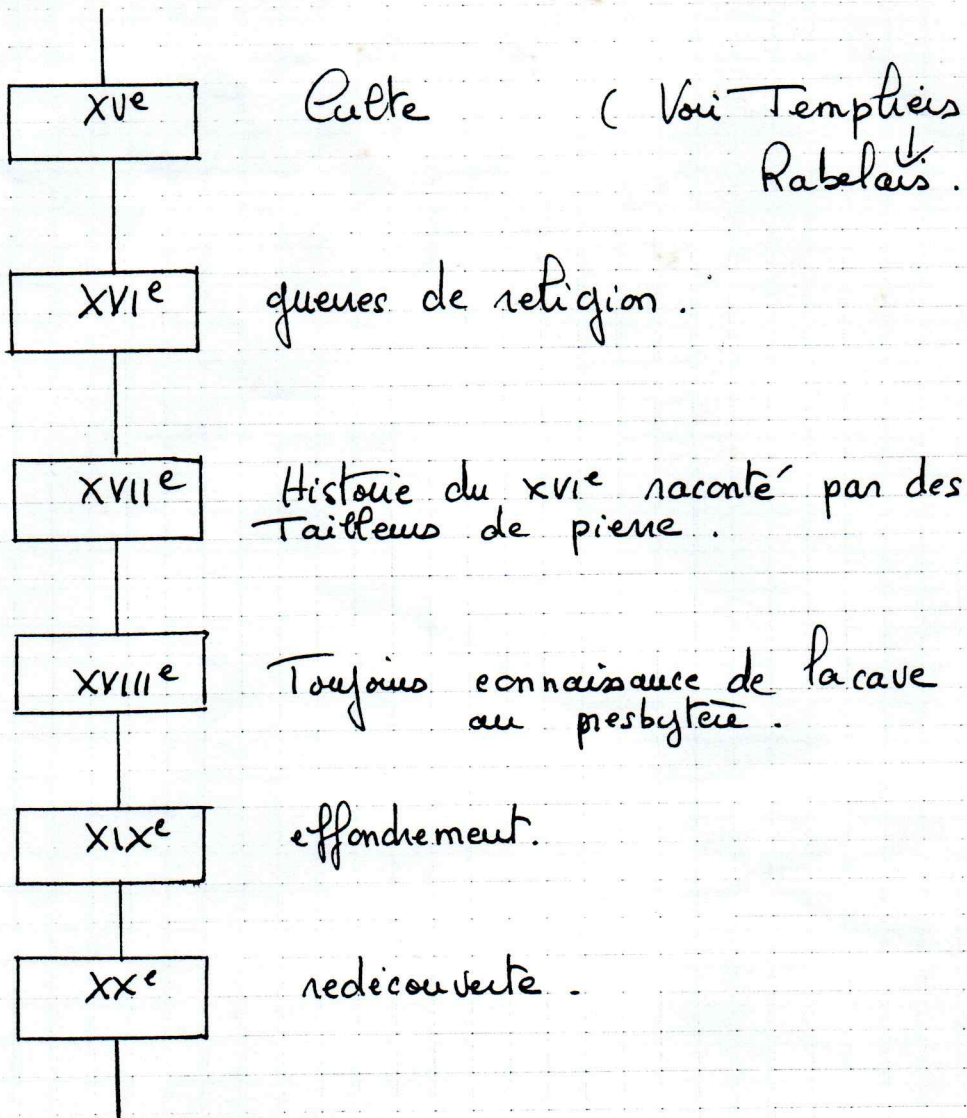 XVe Culte ( Voir Templiers
↓
Rabelais.
XVIe guerres de religion.
XVIIe Histoire du XVIe raconté par des
Tailleurs de pierre.
XVIIIe Toujours connaissance de la cave
au presbytère.
XIXe effondrement.
XXe redécouverte.